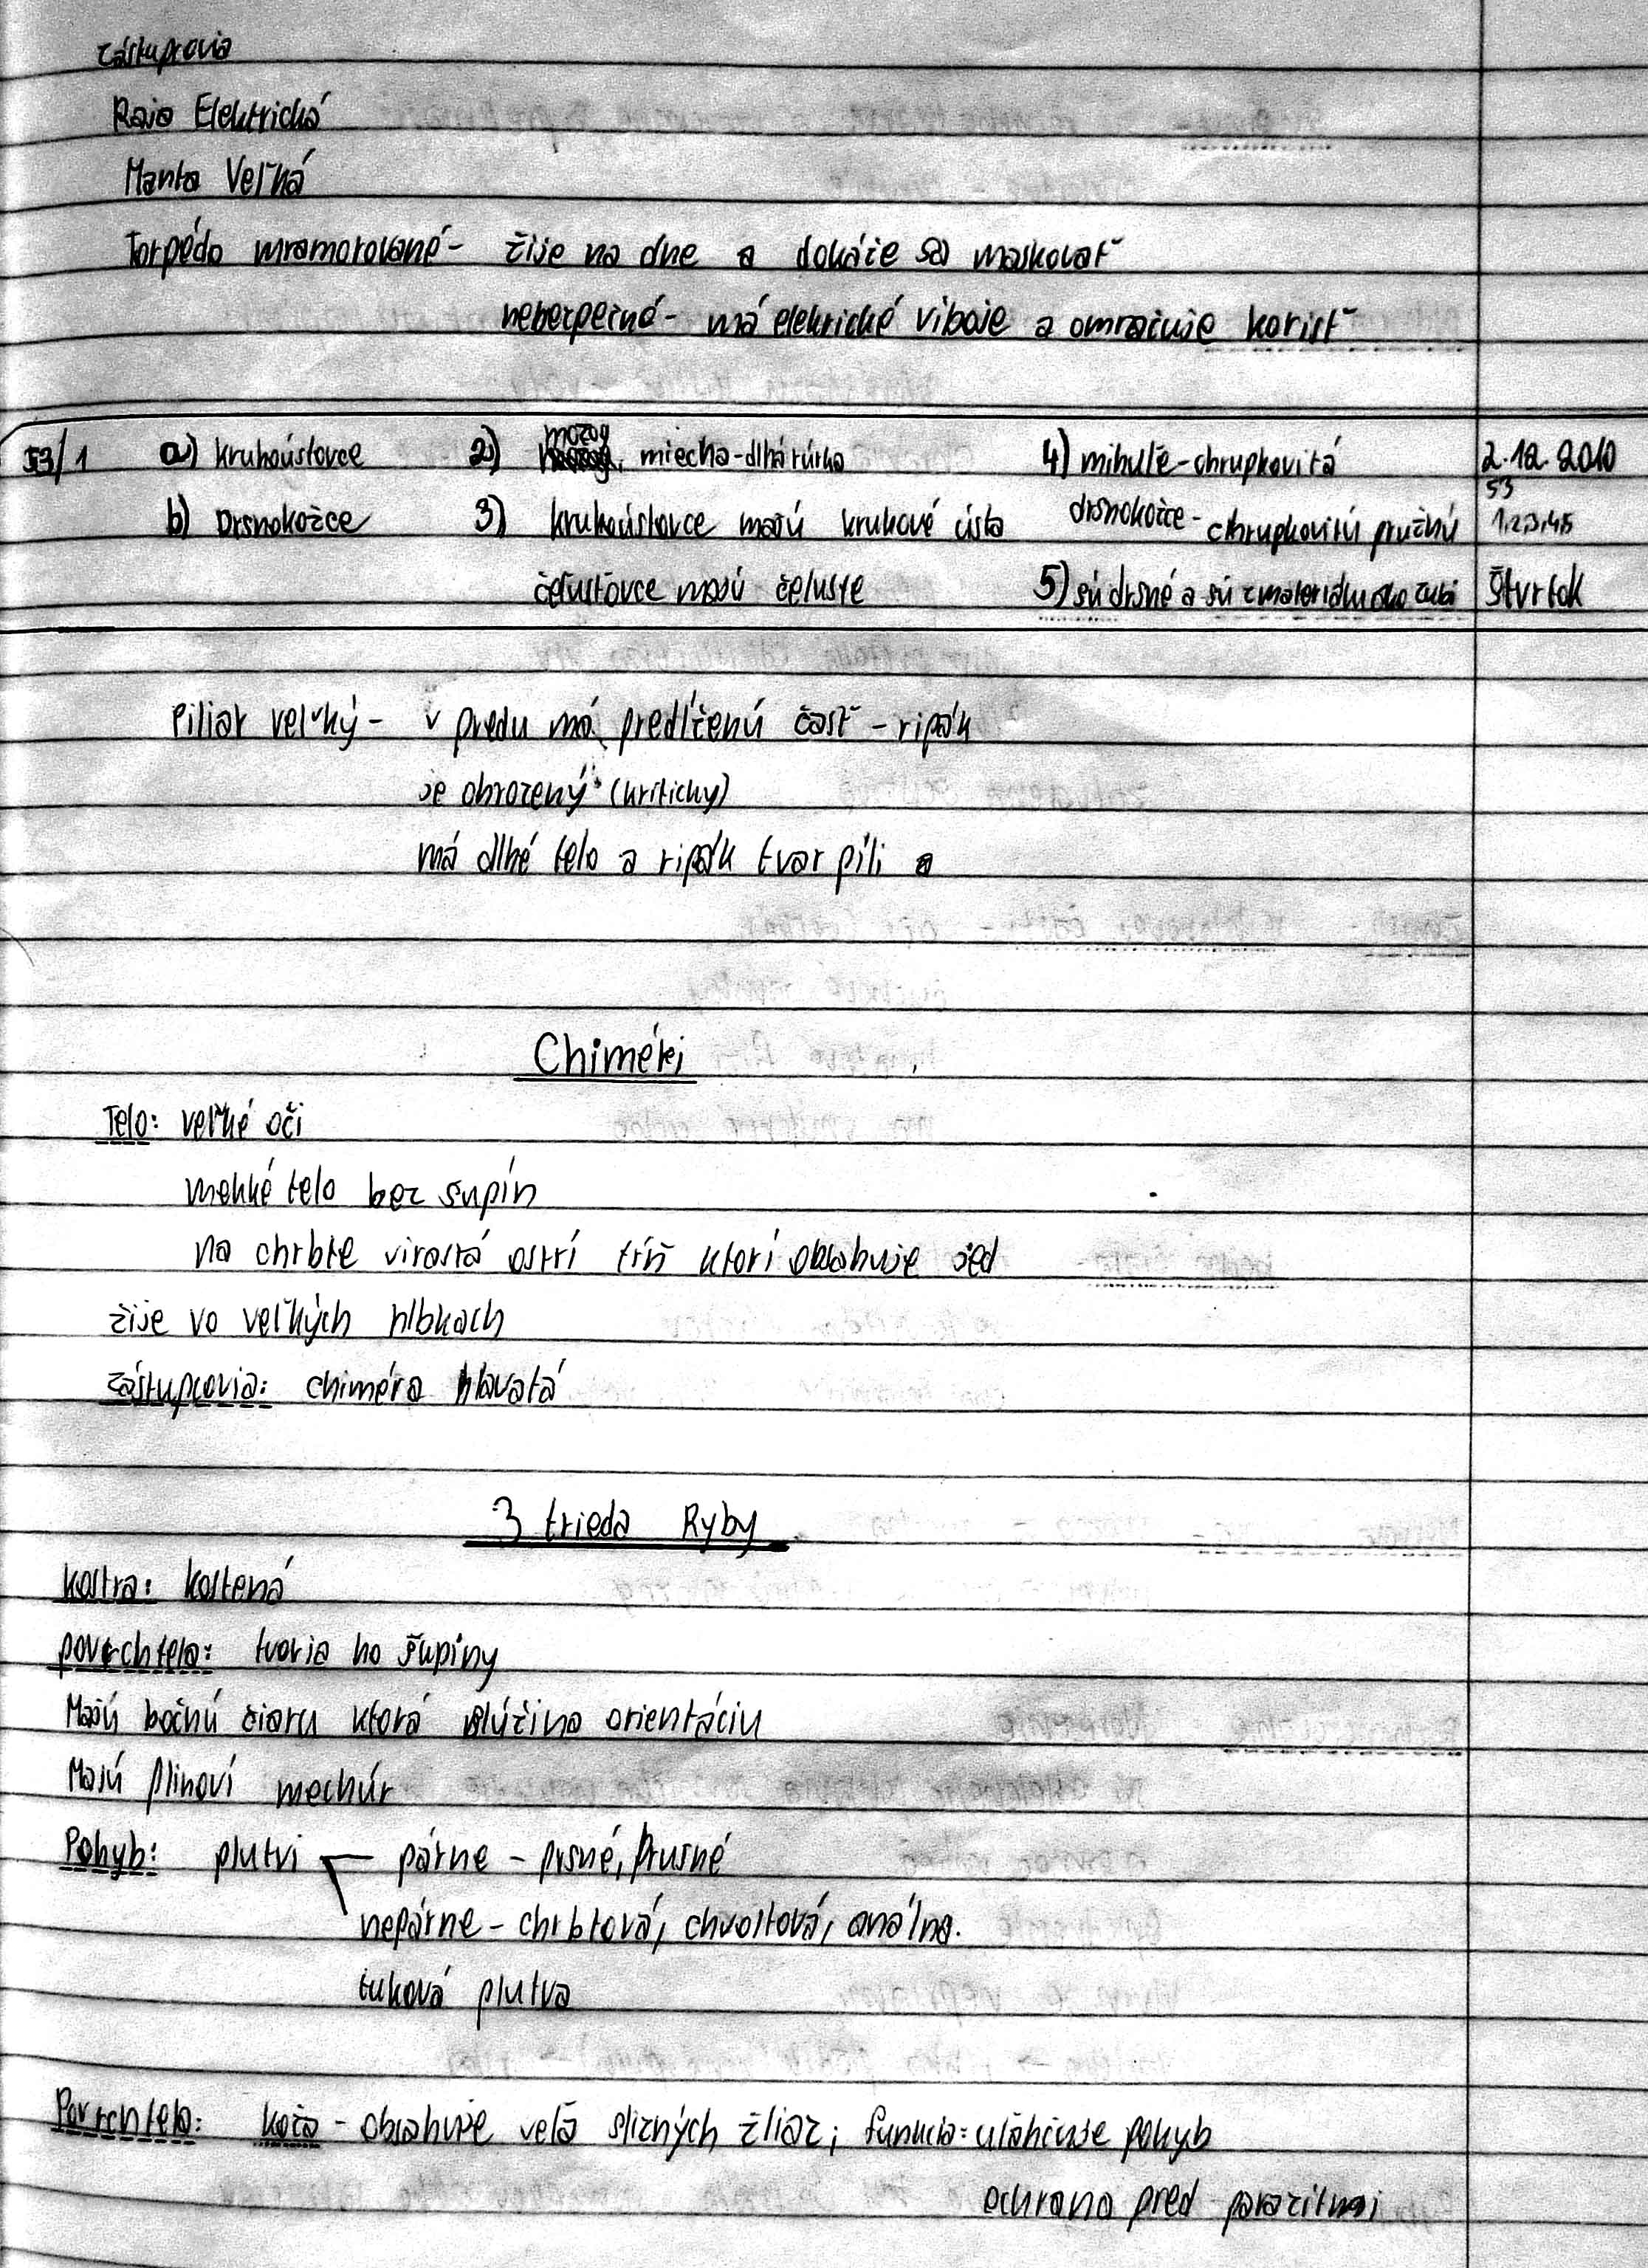 zástupcovia
Raja Elektrická
Manta Veľká
Torpédo mramorované - žije na dne a dokáže sa maskovať
nebezpečné - má elekrické viboje a omračuje korisť
53/1 a) kruhoústovce 2) mozog, miecha - dlhá rúrka 4) mihuľe - chrupkovitá 2.12.2010
53
b) Drsnokožce 3) kruhoústovce majú kruhové ústa drsnokožce - chrupkovitú pružnú 1,2,3,4,5
čeľusťovce majú čeľuste 5) sú drsné a sú z materiálu ako zubi Štvrtok
Piliar veľký - v predu má predĺženú časť - ripák
je ohrozený (kriticky)
má dlhé telo a ripák tvar píli a
Chiméri
Telo: veľké oči
mehké telo bez šupín
na chrbte virastá ostrí tŕň ktorí obsahuje jed
žije vo veľkých hĺbkach
zástupcovia: chiméra hlavatá
3 trieda Ryby
kostra: kostená
povrch tela: tvoria ho šupiny
Majú bočnú čiaru ktorá slúži na orientáciu
Majú plinoví mechúr
Pohyb: plutvi párne - prsné, brušné
nepárne - chrbtová, chvostová, análna.
tuková plutva
Povrch tela: koža - obsahuje veľa slizných žliaz; funkcia: uľahčuje pohyb
ochrana pred parazitmi